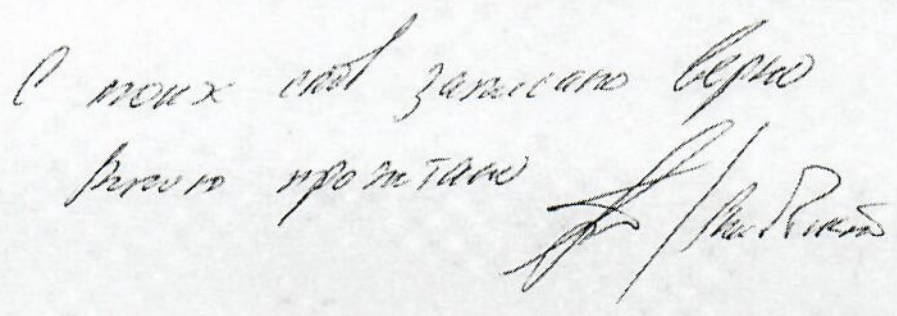 С моих слов записано верно
Мною прочитано